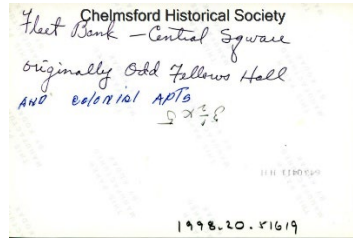 Chelmsford Historical Society
Fleet Bank — Central Square
originally Odd Fellows Hall
AND COLONIAL APTS
1998.20.51619